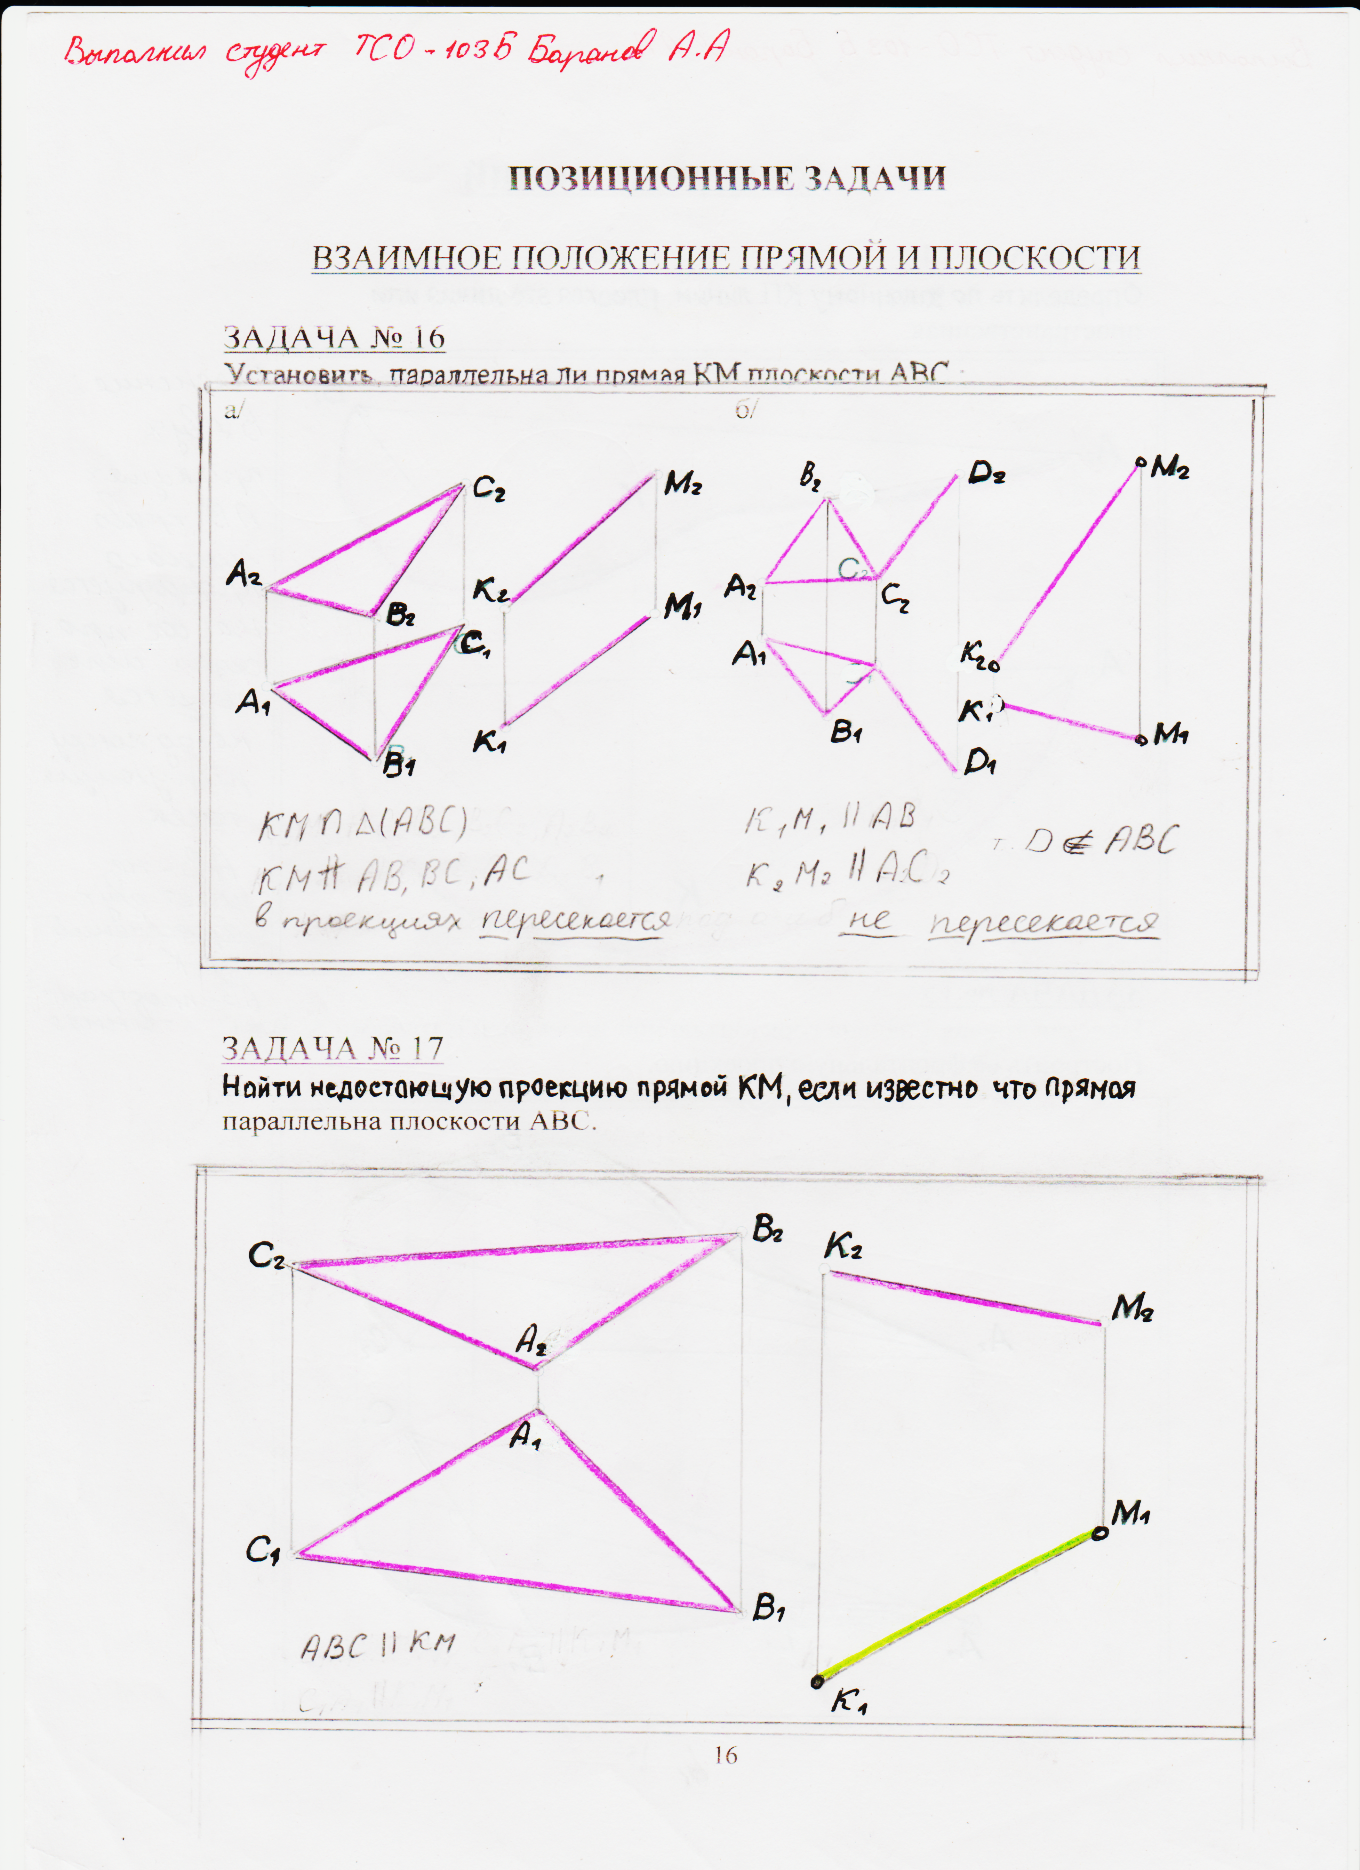 Выполнил студент ТСО-103Б Баранов А.А
ПОЗИЦИОННЫЕ ЗАДАЧИ
ВЗАИМНОЕ ПОЛОЖЕНИЕ ПРЯМОЙ И ПЛОСКОСТИ
ЗАДАЧА № 16
Установить, параллельна ли прямая КМ плоскости АВС
а/ б/
C₂ M₂ B₂ D₂ M₂
A₂ K₂ B₂ M₁ A₂ C₂ C₂
C₁ A₁ K₂
A₁ K₁ B₁ B₁ K₁ M₁ D₁
KM ∩ Δ(ABC)
KM ∦ AB, BC, AC
в проекциях пересекается
K₁M₁ || AB
K₂M₂ || A₂C₂
т. D ∉ ABC
не пересекается
ЗАДАЧА № 17
Найти недостающую проекцию прямой КМ, если известно что прямая
параллельна плоскости АВС.
C₂ B₂ K₂
A₂ M₂
A₁
C₁ M₁
B₁
ABC || KM
K₁
16